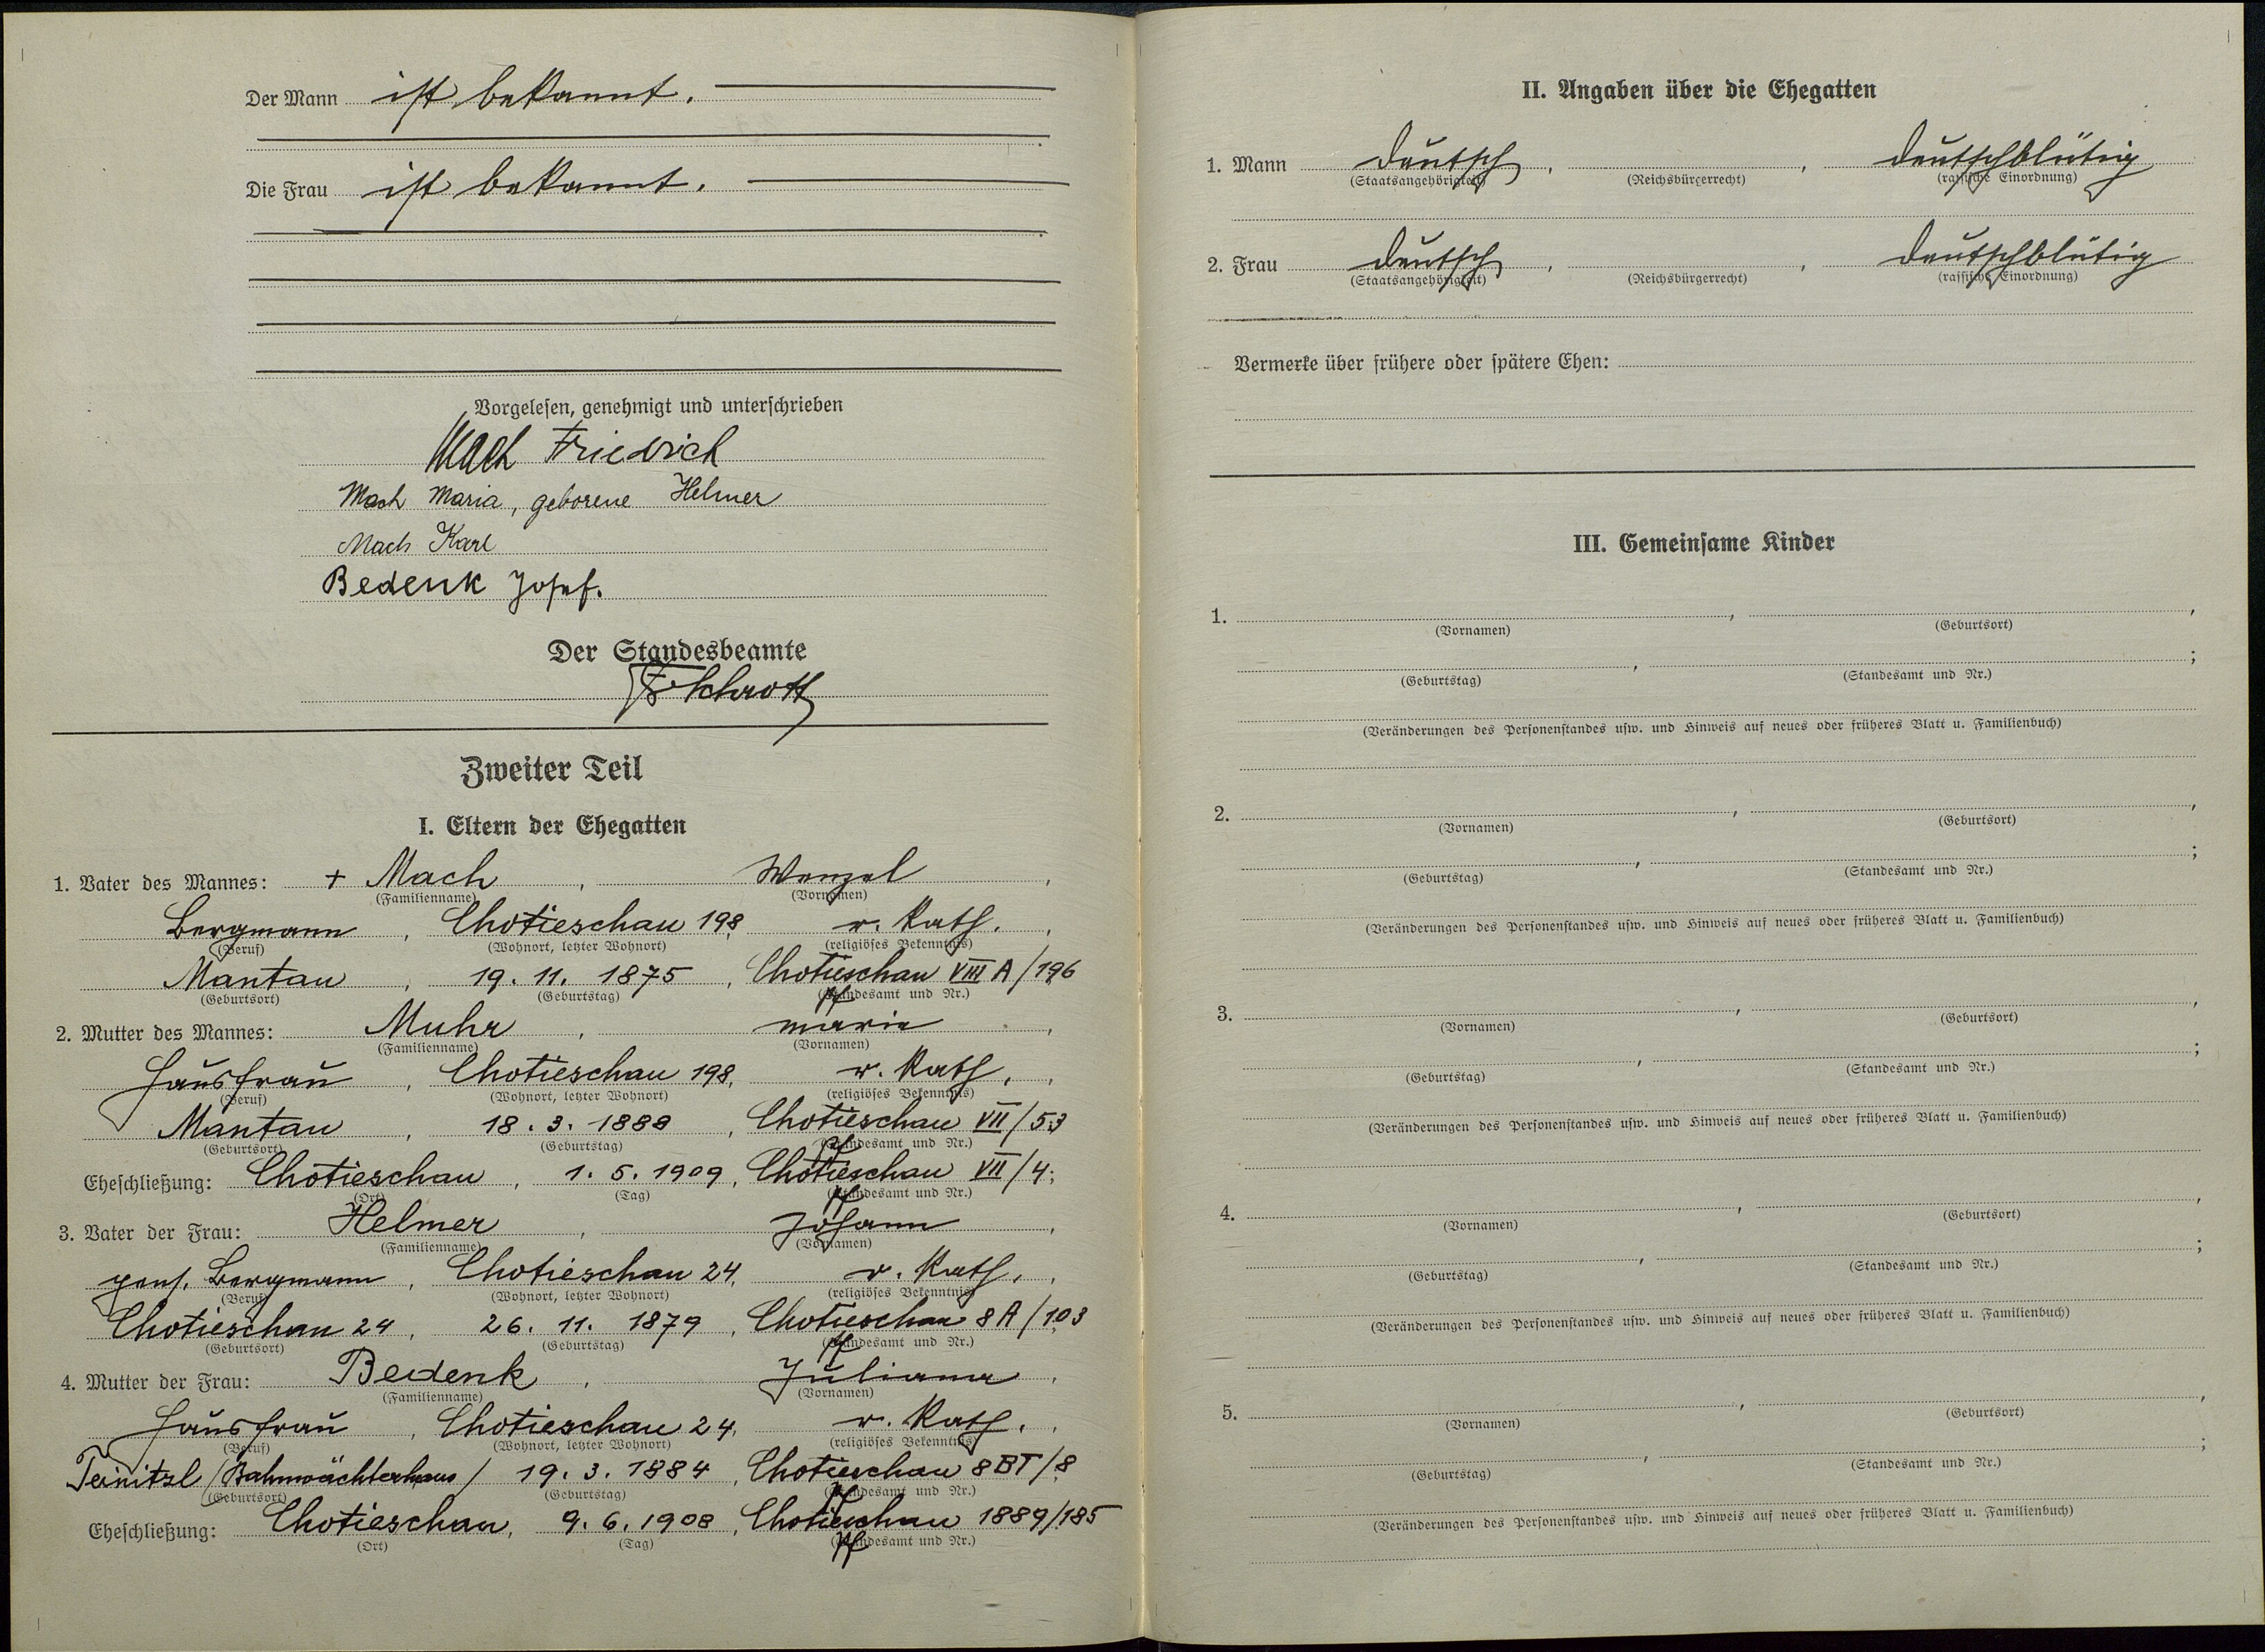 Der Mann ist bekannt.
Die Frau ist bekannt.
Vorgelesen, genehmigt und unterschrieben
Mach Friedrich
Mach Maria, geborene Helmer
Mach Karl
Bedenk Josef.
Der Standesbeamte
Zweiter Teil
I. Eltern der Ehegatten
1. Vater des Mannes: + Mach, Wenzel,
(Familienname) (Vornamen)
Bergmann, Chotieschau 198, r. kath.,
(Beruf) (Wohnort, letzter Wohnort) (religiöses Bekenntnis)
Mantau, 19. 11. 1875, Chotieschau VIII A/196
(Geburtsort) (Geburtstag) (Standesamt und Nr.)
2. Mutter des Mannes: Muhr, Marie,
(Familienname) (Vornamen)
Hausfrau, Chotieschau 198, r. kath.,
(Beruf) (Wohnort, letzter Wohnort) (religiöses Bekenntnis)
Mantau, 18. 3. 1888, Chotieschau VII/53
(Geburtsort) (Geburtstag) (Standesamt und Nr.)
Eheschließung: Chotieschau, 1. 5. 1909, Chotieschau VII/4;
(Ort) (Tag) (Standesamt und Nr.)
3. Vater der Frau: Helmer, Johann,
(Familienname) (Vornamen)
pens. Bergmann, Chotieschau 24, r. kath.,
(Beruf) (Wohnort, letzter Wohnort) (religiöses Bekenntnis)
Chotieschau 24, 26. 11. 1879, Chotieschau 8A/103
(Geburtsort) (Geburtstag) (Standesamt und Nr.)
4. Mutter der Frau: Bedenk, Juliana,
(Familienname) (Vornamen)
Hausfrau, Chotieschau 24, r. kath.,
(Beruf) (Wohnort, letzter Wohnort) (religiöses Bekenntnis)
Teinitzl /Bahnwächterhaus/ 19. 3. 1884, Chotieschau 8BT/8
(Geburtsort) (Geburtstag) (Standesamt und Nr.)
Eheschließung: Chotieschau, 9. 6. 1908, Chotieschau 1889/185
(Ort) (Tag) (Standesamt und Nr.)
II. Angaben über die Ehegatten
1. Mann deutsch, , deutschblütig
(Staatsangehörigkeit) (Reichsbürgerrecht) (rassische Einordnung)
2. Frau deutsch, , deutschblütig
(Staatsangehörigkeit) (Reichsbürgerrecht) (rassische Einordnung)
Vermerke über frühere oder spätere Ehen:
III. Gemeinsame Kinder
1. , ,
(Vornamen) (Geburtsort)
, ;
(Geburtstag) (Standesamt und Nr.)
(Veränderungen des Personenstandes usw. und Hinweis auf neues oder früheres Blatt u. Familienbuch)
2. , ,
(Vornamen) (Geburtsort)
, ;
(Geburtstag) (Standesamt und Nr.)
(Veränderungen des Personenstandes usw. und Hinweis auf neues oder früheres Blatt u. Familienbuch)
3. , ,
(Vornamen) (Geburtsort)
, ;
(Geburtstag) (Standesamt und Nr.)
(Veränderungen des Personenstandes usw. und Hinweis auf neues oder früheres Blatt u. Familienbuch)
4. , ,
(Vornamen) (Geburtsort)
, ;
(Geburtstag) (Standesamt und Nr.)
(Veränderungen des Personenstandes usw. und Hinweis auf neues oder früheres Blatt u. Familienbuch)
5. , ,
(Vornamen) (Geburtsort)
, ;
(Geburtstag) (Standesamt und Nr.)
(Veränderungen des Personenstandes usw. und Hinweis auf neues oder früheres Blatt u. Familienbuch)